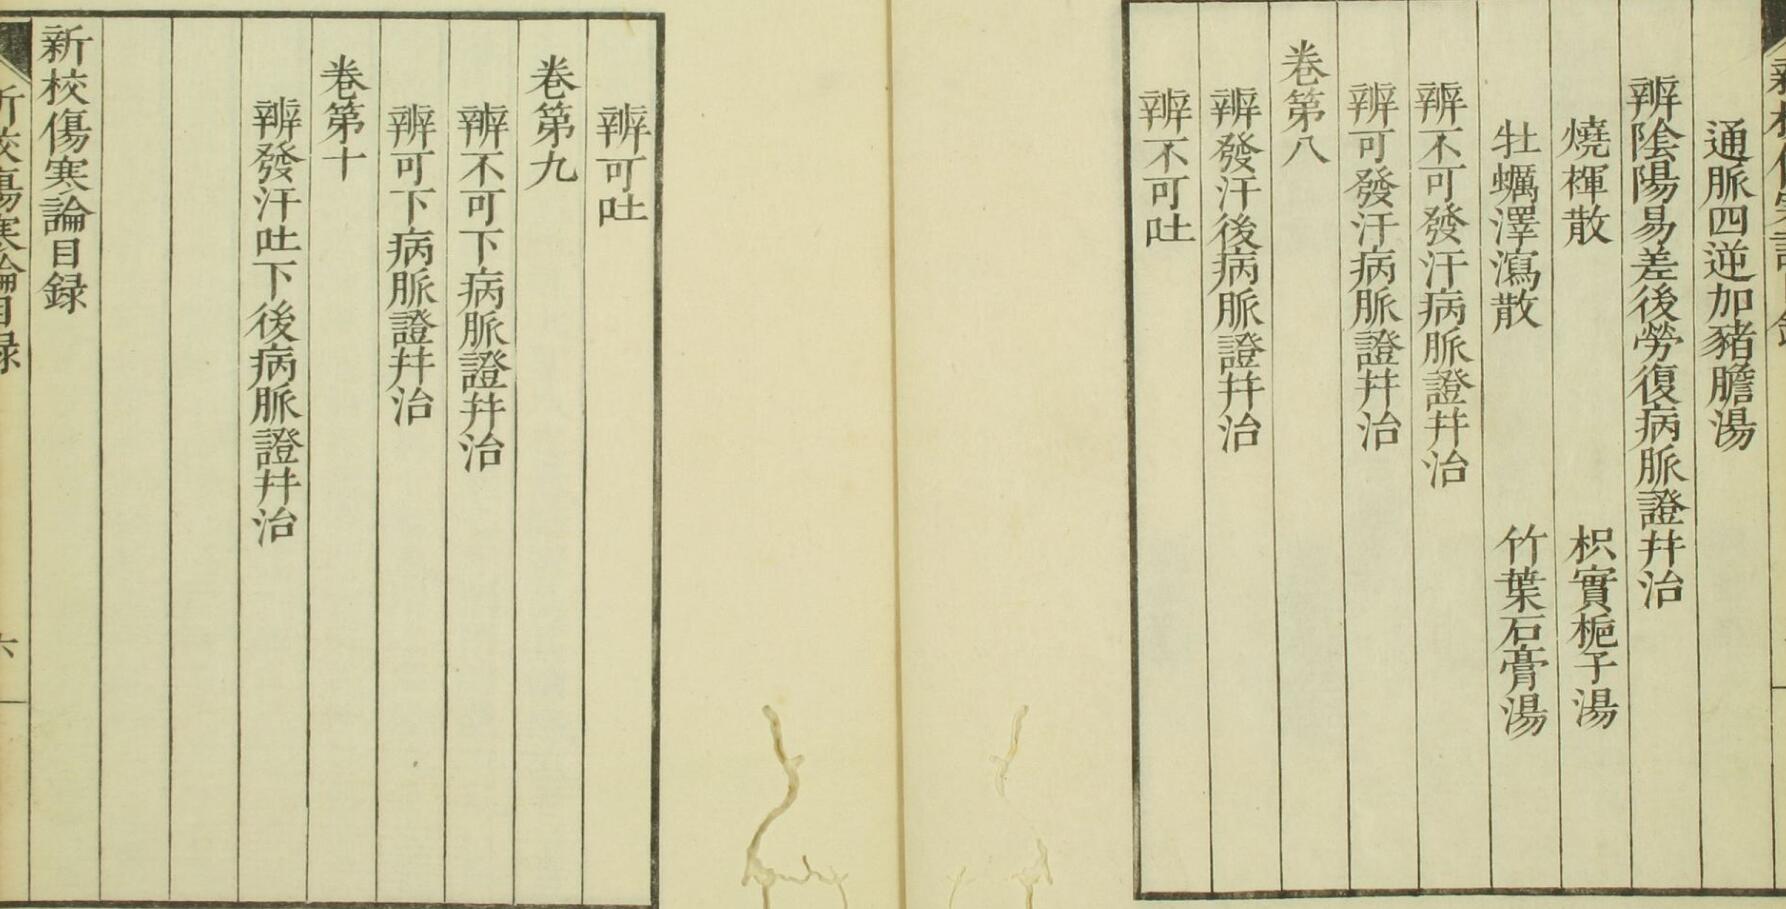 通脈四逆加豬膽湯
辨陰陽易差後勞復病脈證并治
燒褌散　枳實梔子湯
牡蠣澤瀉散　竹葉石膏湯
辨不可發汗病脈證并治
辨可發汗病脈證并治
卷第八
辨發汗後病脈證并治
辨不可吐
辨可吐
卷第九
辨不可下病脈證并治
辨可下病脈證并治
卷第十
辨發汗吐下後病脈證并治
新校傷寒論目録
新校傷寒論目録
六